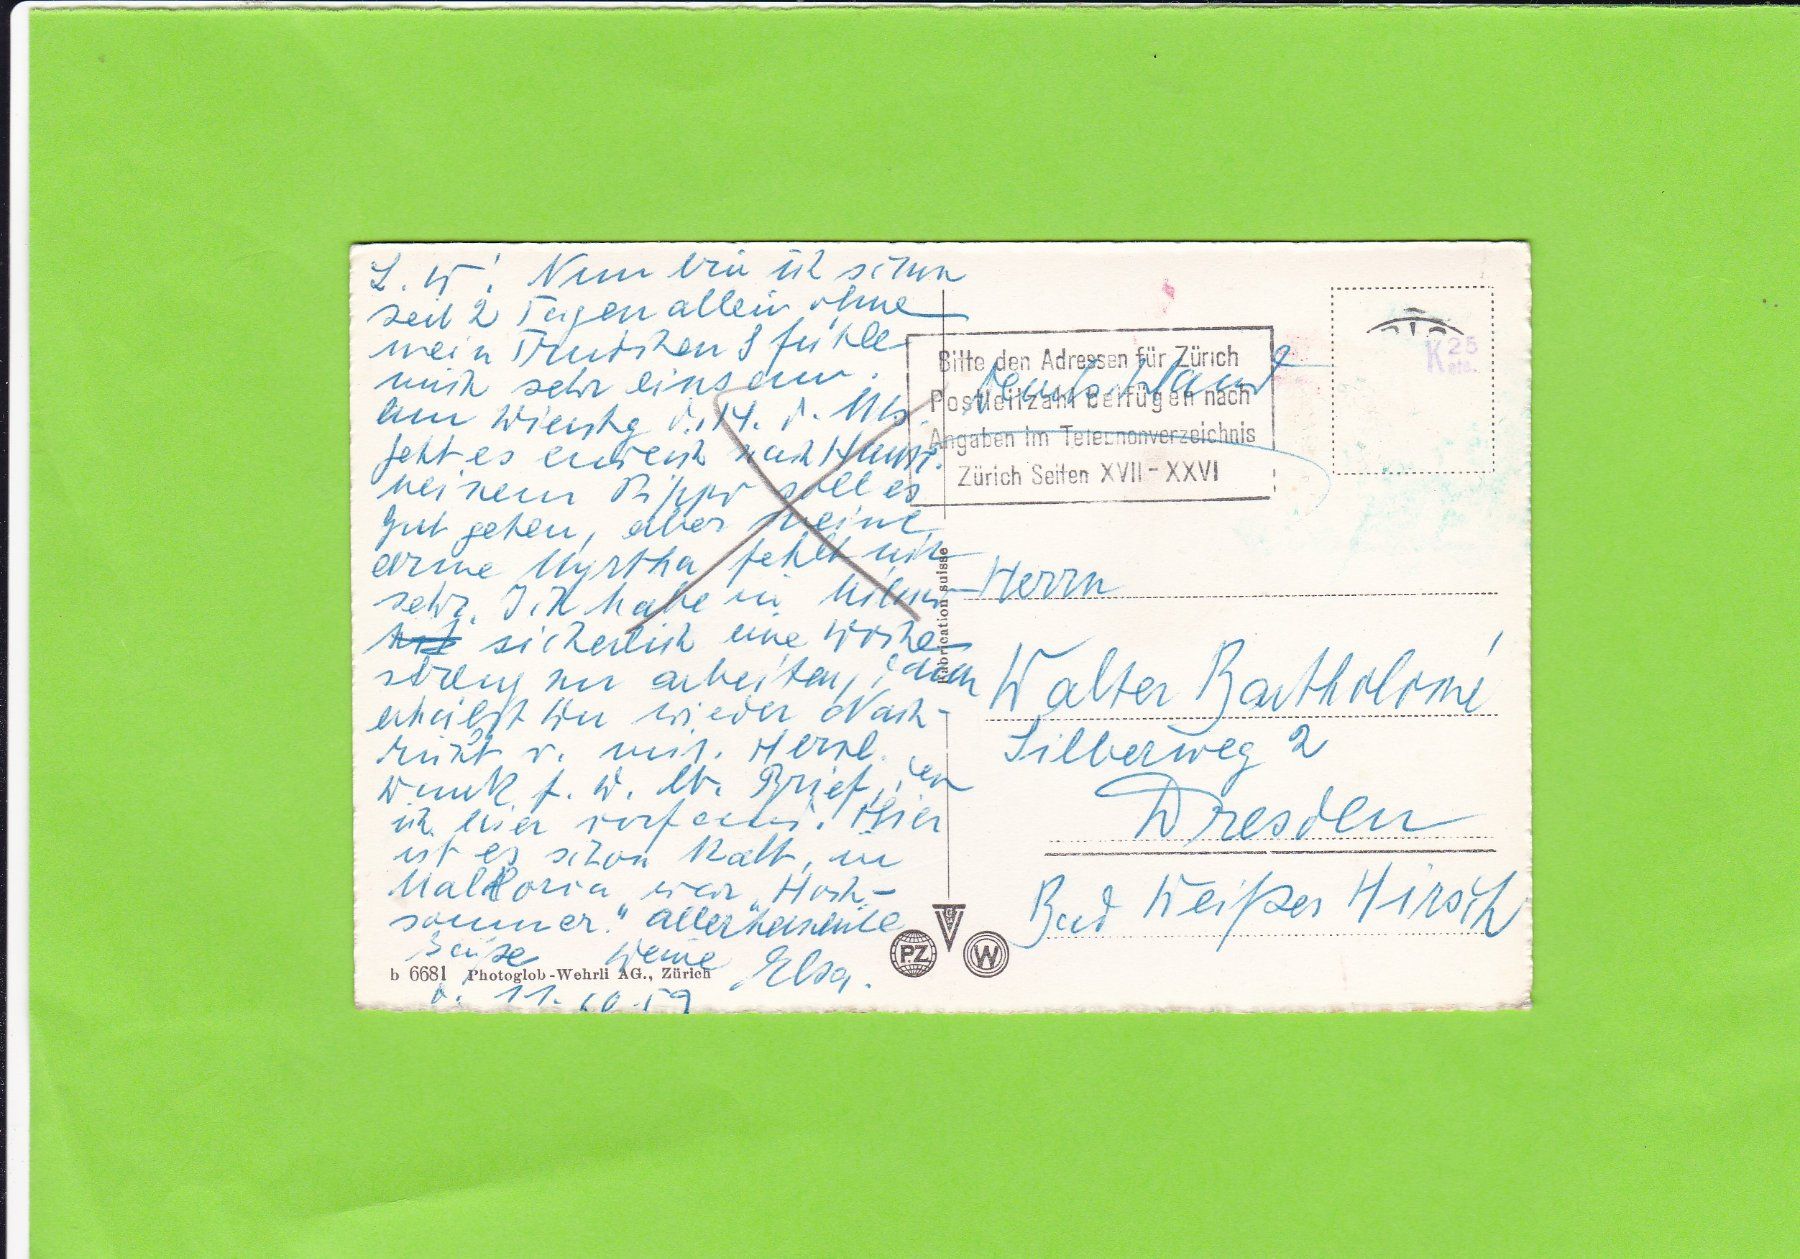 L. W! Nun bin ich schon
seit 2 Tagen allein ohne
mein Trudchen & fühle
mich sehr einsam.
Am Dienstag d. 14. d. Mts.
geht es endlich nach Hause.
Meinem Pippo soll es
gut gehen, aber meine
arme Myrtha fehlt mir
sehr. Ich habe in
sicherlich eine Woche
streng zu arbeiten, dann
erhälst Du wieder Nach-
richt v. mir. Herzl.
Dank f. D. lb. Brief, den
ich hier vorfand. Hier
ist es schon kalt, in
Mallorca war „Hoch-
sommer." allerherzliche
Deine Elsa.
d. 11. 10. 59
b 6681 Photoglob-Wehrli AG., Zürich
Fabrication suisse
PZ
W
Bitte den Adressen für Zürich
Postleitzahl beifügen nach
Angaben im Telephonverzeichnis
Zürich Seiten XVII-XXVI
Deutschland
K 25
cts.
Herrn
Walter Bartholomé
Silberweg 2
Dresden
Bad Weißer Hirsch